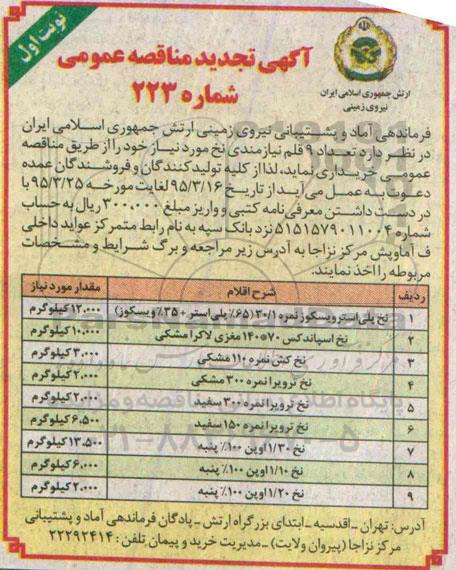 نوبت اول
ارتش جمهوری اسلامی ایران
نیروی زمینی
آگهی تجدید مناقصه عمومی
شماره ۲۲۳
فرماندهی آماد و پشتیبانی نیروی زمینی ارتش جمهوری اسلامی ایران
در نظر دارد تعداد ۹ قلم نیازمندی نخ مورد نیاز خود را از طریق مناقصه
عمومی خریداری نماید، لذا از کلیه تولیدکنندگان و فروشندگان عمده
دعوت به عمل می‌آید از تاریخ ۹۵/۳/۱۶ لغایت مورخه ۹۵/۳/۲۵ با
در دست داشتن معرفی‌نامه کتبی و واریز مبلغ ۳۰۰,۰۰۰ ریال به حساب
شماره ۵۱۵۱۵۷۹۰۱۱۰۰۴ نزد بانک سپه به نام رابط متمرکز عواید داخلی
ف آماوپش مرکز نزاجا به آدرس زیر مراجعه و برگ شرایط و مشخصات
مربوطه را اخذ نمایند.
ردیف شرح اقلام مقدار مورد نیاز
۱ نخ پلی‌استر ویسکوز نمره ۳۰/۱ (۶۵٪ پلی‌استر + ۳۵٪ ویسکوز) ۱۲,۰۰۰ کیلوگرم
۲ نخ اسپاندکس ۷۰*۱۴۰ مغزی لاکرا مشکی ۱۰,۰۰۰ کیلوگرم
۳ نخ کش نمره ۱۱۰ مشکی ۳,۰۰۰ کیلوگرم
۴ نخ ترویرا نمره ۳۰۰ مشکی ۲,۰۰۰ کیلوگرم
۵ نخ ترویرا نمره ۳۰۰ سفید ۲,۰۰۰ کیلوگرم
۶ نخ ترویرا نمره ۱۵۰ سفید ۶,۵۰۰ کیلوگرم
۷ نخ ۱/۳۰ اوپن ۱۰۰٪ پنبه ۱۳,۵۰۰ کیلوگرم
۸ نخ ۱/۱۰ اوپن ۱۰۰٪ پنبه ۶,۰۰۰ کیلوگرم
۹ نخ ۱/۲۰ اوپن ۱۰۰٪ پنبه ۲,۰۰۰ کیلوگرم
آدرس: تهران - اقدسیه - ابتدای بزرگراه ارتش - پادگان فرماندهی آماد و پشتیبانی
مرکز نزاجا (پیروان ولایت) - مدیریت خرید و پیمان تلفن: ۲۲۲۹۲۴۱۴